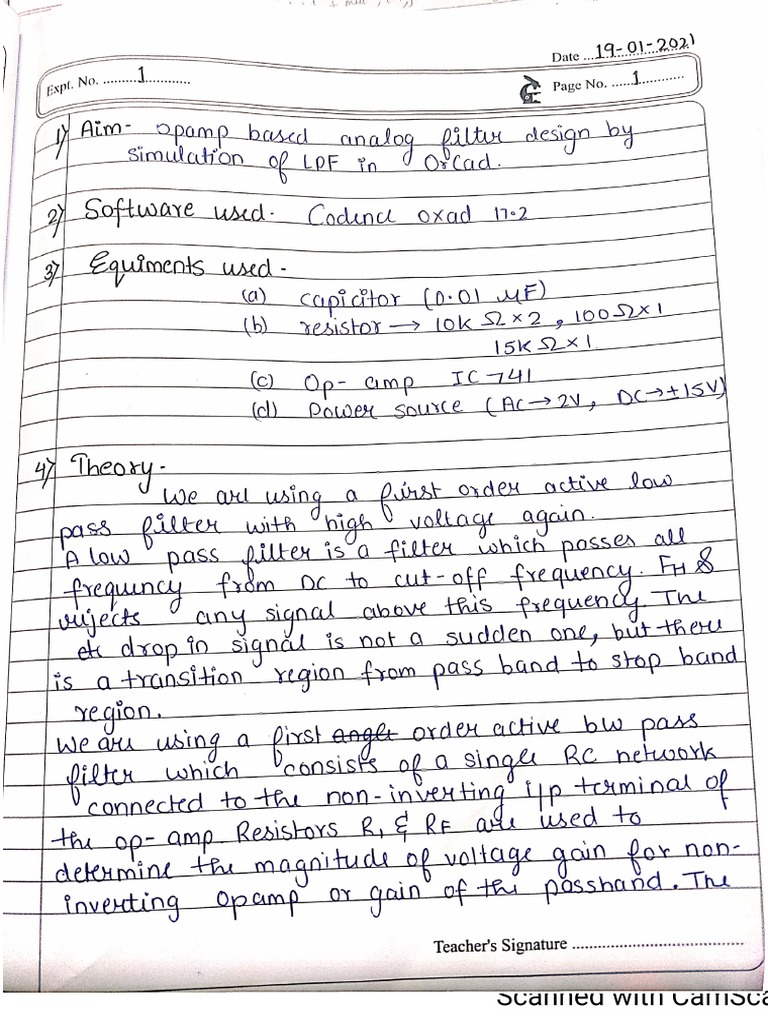 Date ... 19-01-2021
Expt. No. ......... 1 ...........
Page No. ...... 1 ...........
1) Aim- opamp based analog filter design by
simulation of LPF in OrCad.
2) Software used- Cadence oxad 17.2
3) Equiments used -
(a) capicitor (0.01 μF)
(b) resistor → 10K Ω×2, 100Ω×1
15K Ω×1
(c) Op-amp IC 741
(d) Power source (AC→2V, DC→±15V)
4) Theory-
We are using a first order active low
pass filter with high voltage again.
A low pass filter is a filter which passes all
frequency from DC to cut-off frequency. FH &
rejects any signal above this frequency. The
drop in signal is not a sudden one, but there
is a transition region from pass band to stop band
region.
We are using a first order active low pass
filter which consists of a single RC network
connected to the non-inverting i/p terminal of
the op-amp Resistors R1 & RF are used to
determine the magnitude of voltage gain for non-
inverting opamp or gain of the passband. The
Teacher's Signature .............................................
Scanned with CamSca